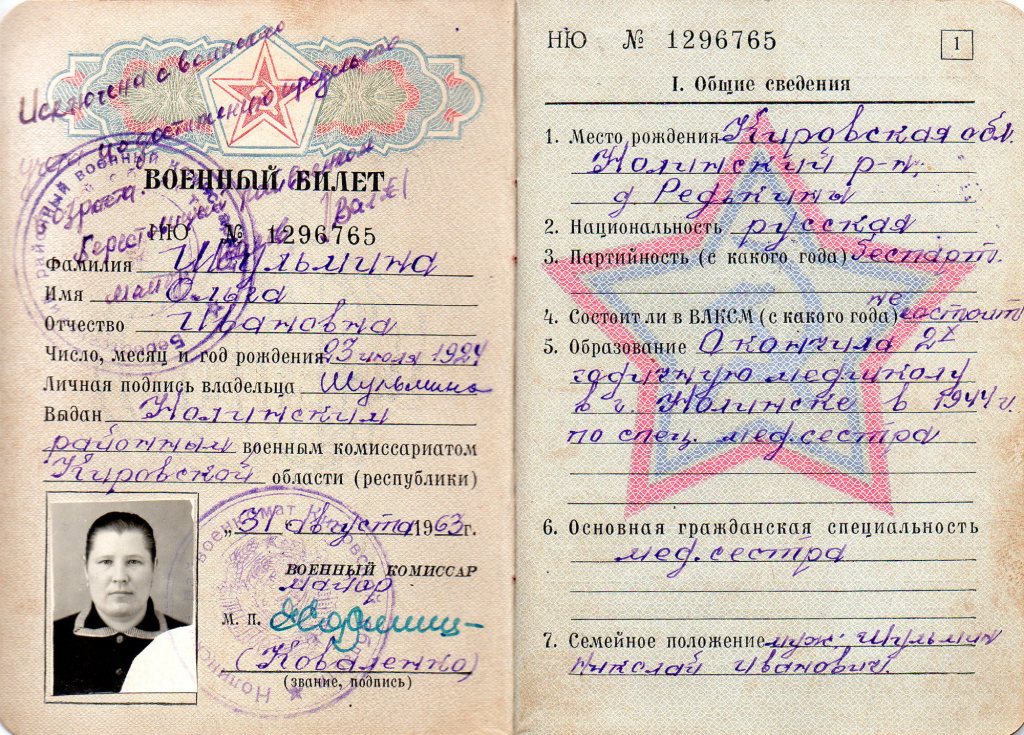 Исключена с воинского
учета по достижению предельного
возраста.
ВОЕННЫЙ БИЛЕТ
НЮ № 1296765
Фамилия Шульмина
Имя Ольга
Отчество Ивановна
Число, месяц и год рождения 23 июля 1924
Личная подпись владельца Шульмина
Выдан Нолинским
районным военным комиссариатом
Кировской области (республики)
„31 августа 1963 г.
ВОЕННЫЙ КОМИССАР
майор
М. П.
(Коваленко)
(звание, подпись)
НЮ № 1296765
1
I. Общие сведения
1. Место рождения Кировская обл.
Нолинский р-н,
д. Редькины
2. Национальность русская
3. Партийность (с какого года) беспарт.
4. Состоит ли в ВЛКСМ (с какого года) не состоит
5. Образование Окончила 2х
годичную медшколу
в г. Нолинске в 1944 г.
по спец. мед.сестра
6. Основная гражданская специальность
мед.сестра
7. Семейное положение муж: Шульмин
Николай Иванович.